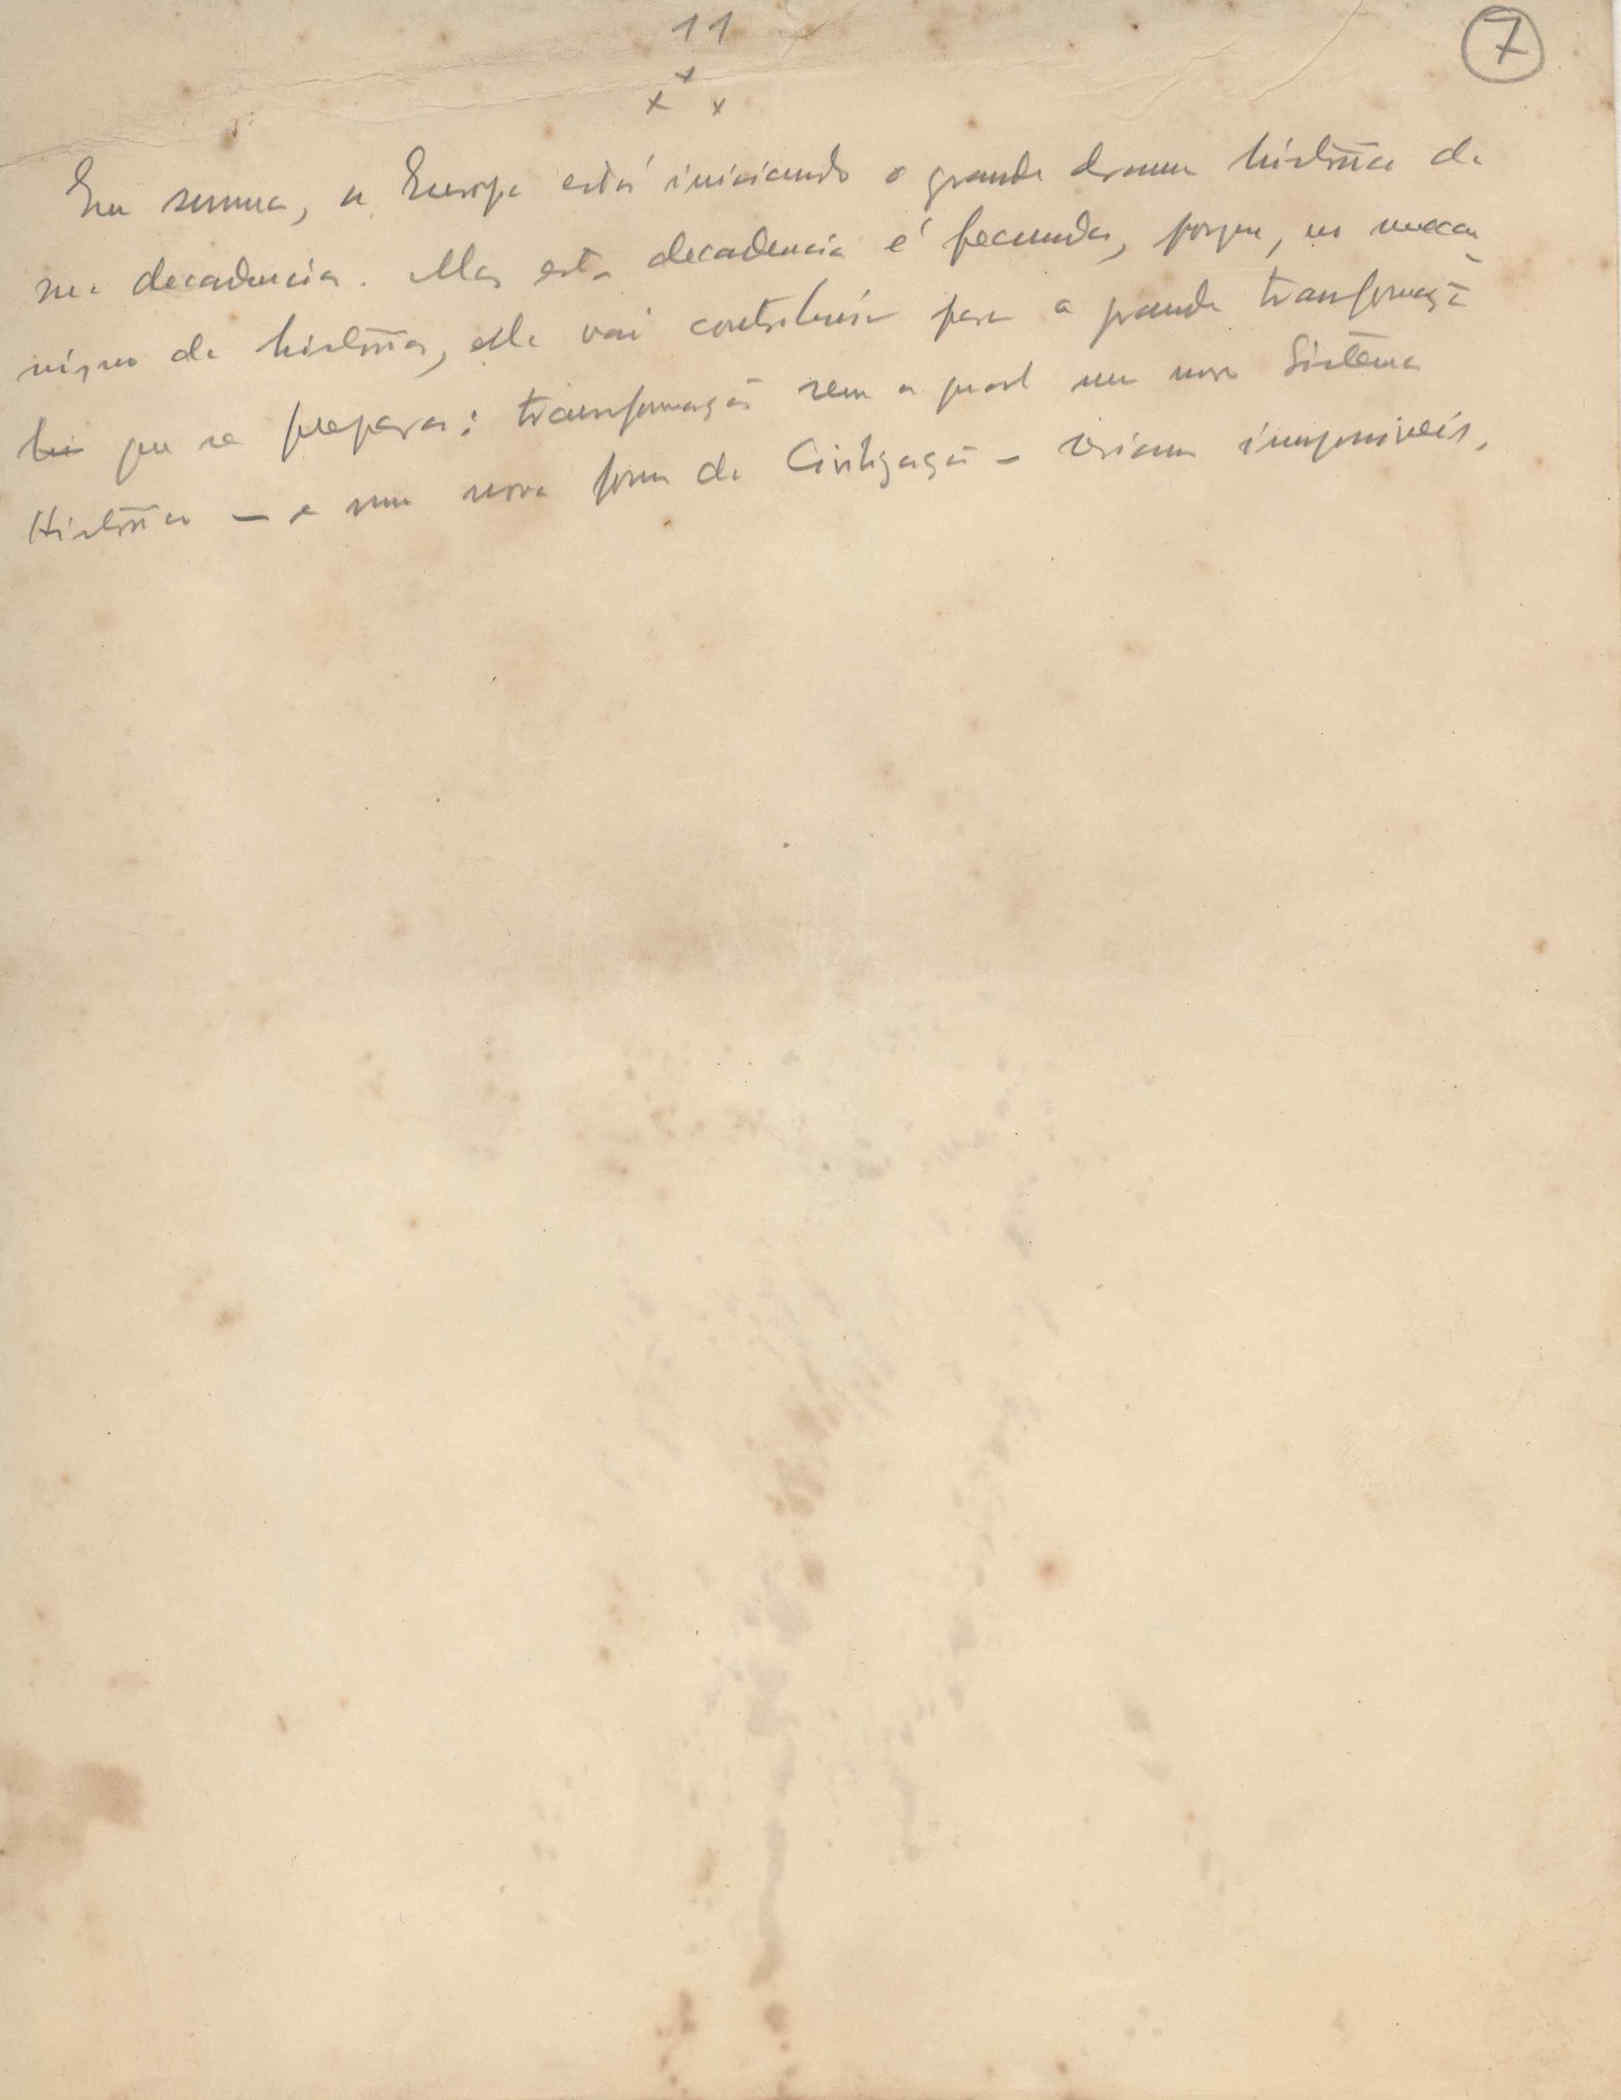 11
7
x x x
Em summa, a Europa está iniciando o grande drama historico de
sua decadencia. Mas esta decadencia é fecunda, porque, no mecca-
nismo da historia, ella vai contribuir para a grande transformaçã
que se prepara: transformação sem a qual um novo Sistema
Historico — e uma nova forma de Civilização — seriam impossiveis.